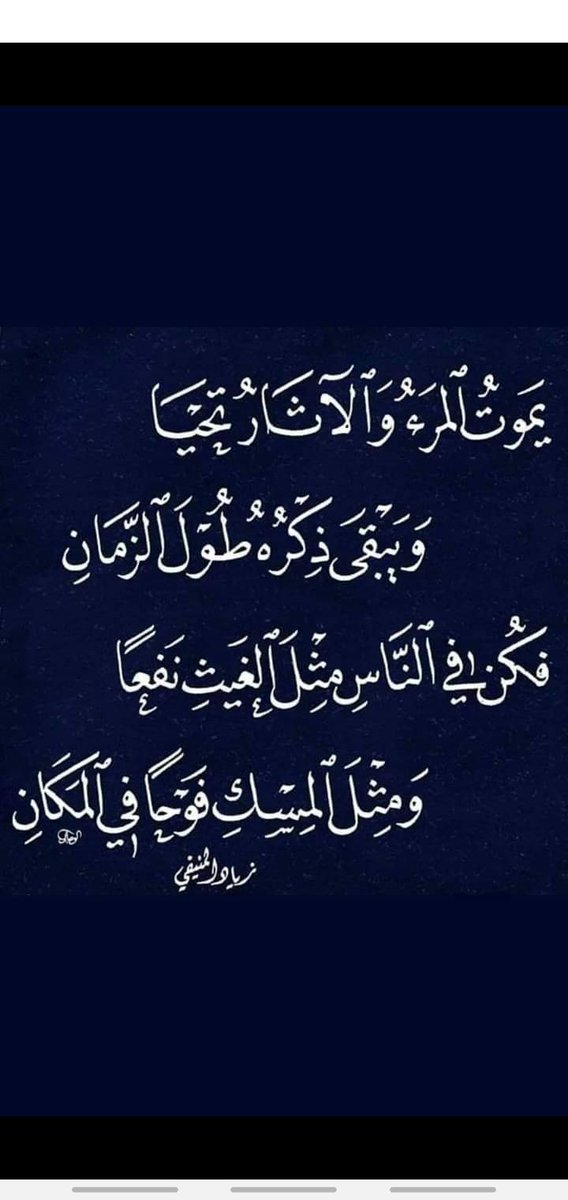 يَمَوتُ ٱلمَرَءُ وَٱلآثَارُ تَحۡيَا
وَيَبۡقَى ذِكۡرُهُ طُوۡلَ ٱلزَّمَانِ
فَكُن فِي ٱلنَّاسِ مِثۡلَ ٱلغَيثِ نَفعًا
وَمِثۡلَ ٱلمِسۡكِ فَوۡحًا فِي ٱلمَكَانِ
زياد المنيفي